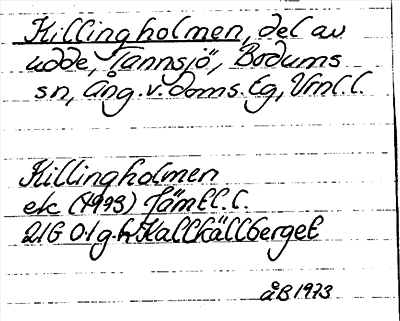 Killingholmen, del av
udde, Tannsjö, Bodums
sn, Ång. v. doms. tg, Vrnl. l.
Killingholmen
ek (1973) Jämtl. l.
21G 0.1 g.h Kallkällberget
ÅB 1973